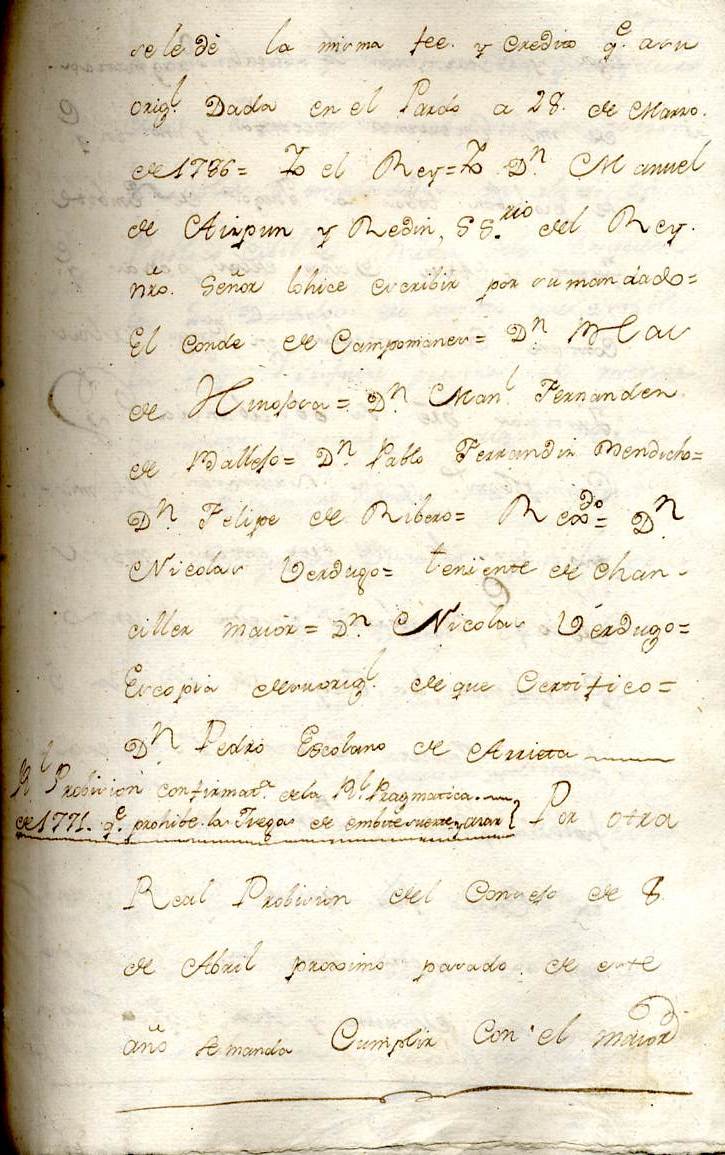 se le dè la misma fee. y Credito q.e a su
orig.l Dada en el Pardo a 28. de Marzo.
de 1786= Yo el Rey=Yo D.n Manuel
de Aizpun y Redin, SS.rio del Rey.
nro. Señor lo hice escribir por su mandado=
El Conde de Campomanes= D.n Blas
de Hinojosa= D.n Man.l Fernandez
de Vallejo= D.n Pablo Ferrandiz Bendicho=
D.n Felipe de Ribero= Rexdo= D.n
Nicolas Verdugo= teniente de Chan-
ciller maior= D.n Nicolas Verdugo=
Es copia de su orig.l de que Certifico=
D.n Pedro Escolano de Arrieta
R.l Probision confirmat.a de la R.l Pragmatica.
de 1771. q.e prohibe los Juegos de embite suerte y azar} Por otra
Real Probision del Consejo de 8
de Abril proximo pasado de este
año se manda Cumplir Con el maior